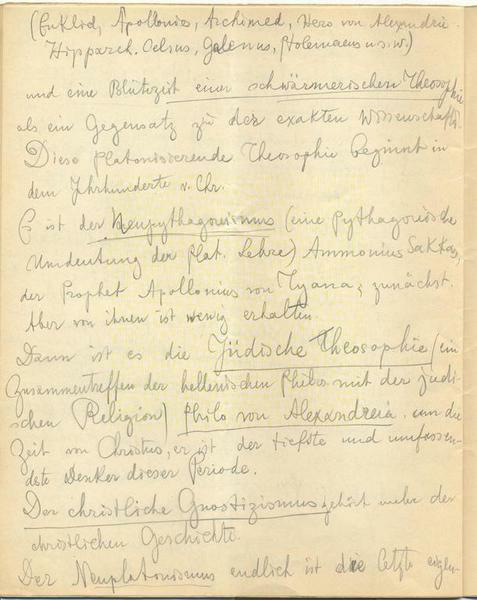 (Euklid, Apollonios, Archimed, Hero von Alexandria.
Hipparch. Celsus, Galenus, Ptolemaeus u.s.w.)
und eine Blütezeit einer schwärmerischen Theosophie
als ein Gegensatz zu der exakten Wissenschaft.
Diese platonisierende Theosophie beginnt in
dem Jhrhunderte v. Chr.
Es ist der Neupythagorismus (eine pythagoreische
Umdeutung der Plat. Lehre) Ammonius Sakkas,
der Prophet Apollonius von Tyana, zunächst.
Aber von ihnen ist wenig erhalten.
Dann ist es die Jüdische Theosophie (ein
Zusammentreffen der hellenischen Philos. mit der jüdi-
schen Religion) Philo von Alexandreia. um die
Zeit von Christus, er ist der tiefste und umfassen-
dste Denker dieser Periode.
Der christliche Gnostizismus gehört mehr der
christlichen Geschichte.
Der Neuplatonismus endlich ist die letzte eigen-